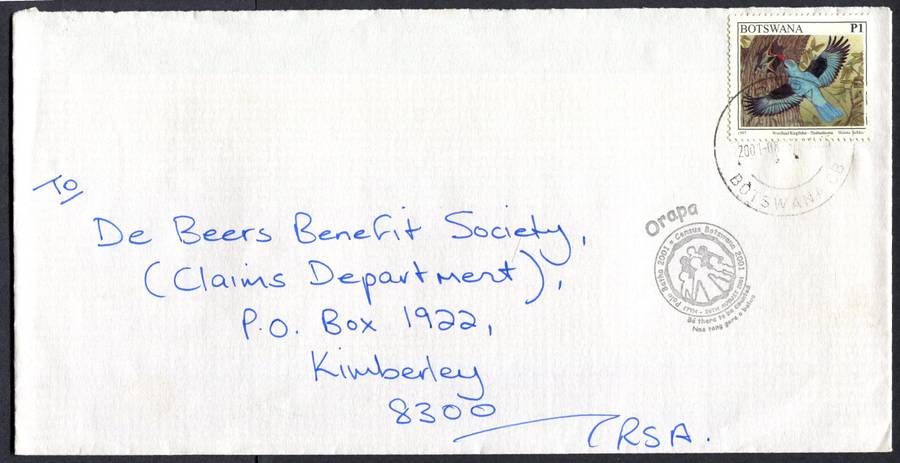 BOTSWANA P1
1997 Woodland Kingfisher
2001-0
BOTSWANA
To
De Beers Benefit Society,
(Claims Department),
P.O. Box 1922,
Kimberley
8300
RSA.
Orapa
Census Botswana 2001
Palo Batho 2001
17TH - 26TH AUGUST 2001
Be there to be counted
Nna teng gore o balwe